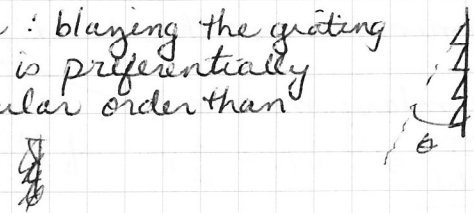 : blazing the grating
is preferentially
ular order than
θ